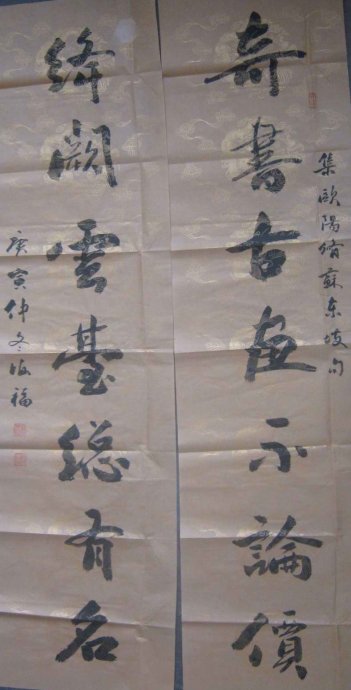 集歐陽脩蘇東坡句
奇書古畫不論價
絳闕雲臺總有名
庚寅仲冬海福